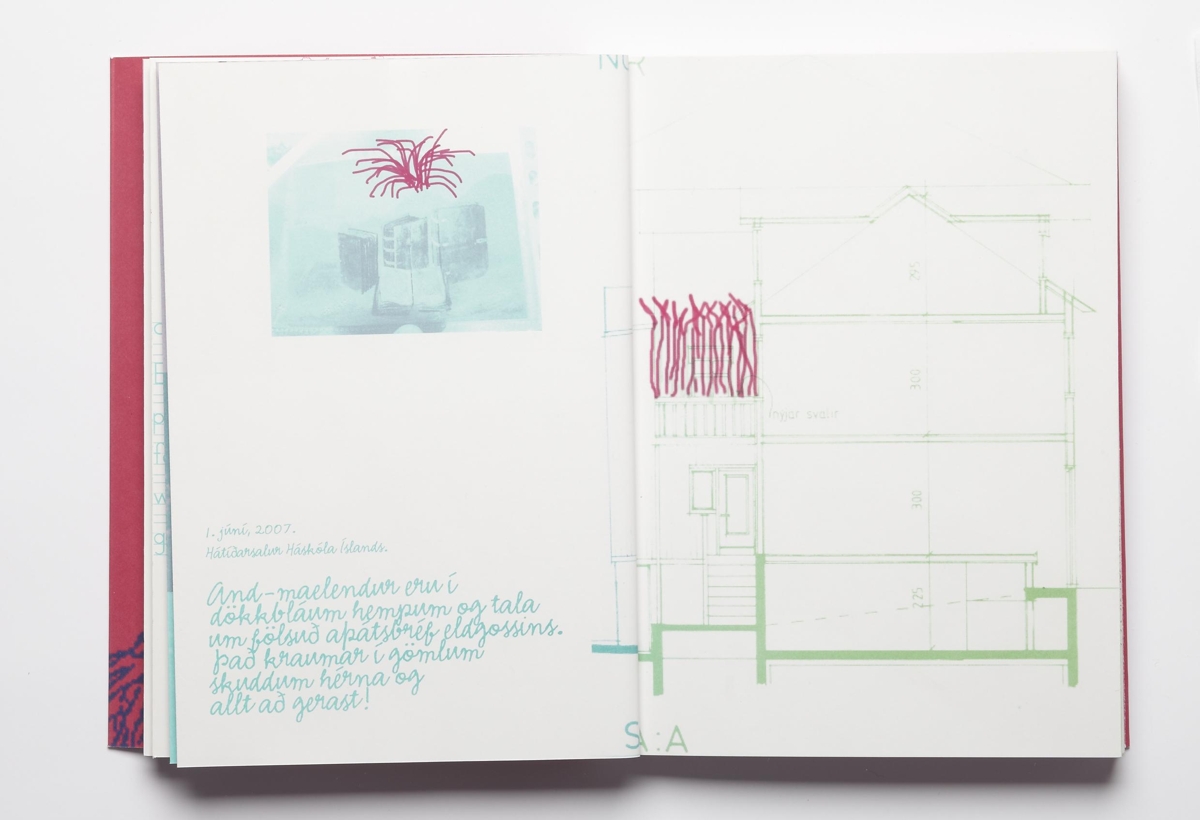 1. júní, 2007.
Hátíðarsalur Háskóla Íslands.
And-maelendur eru í
dökkbláum hempum og tala
um fölsuð apatsbréf eldgossins.
Það kraumar í gömlum
skuddum hérna og
allt að gerast!
295
300
nýjar svalir
300
225
:A